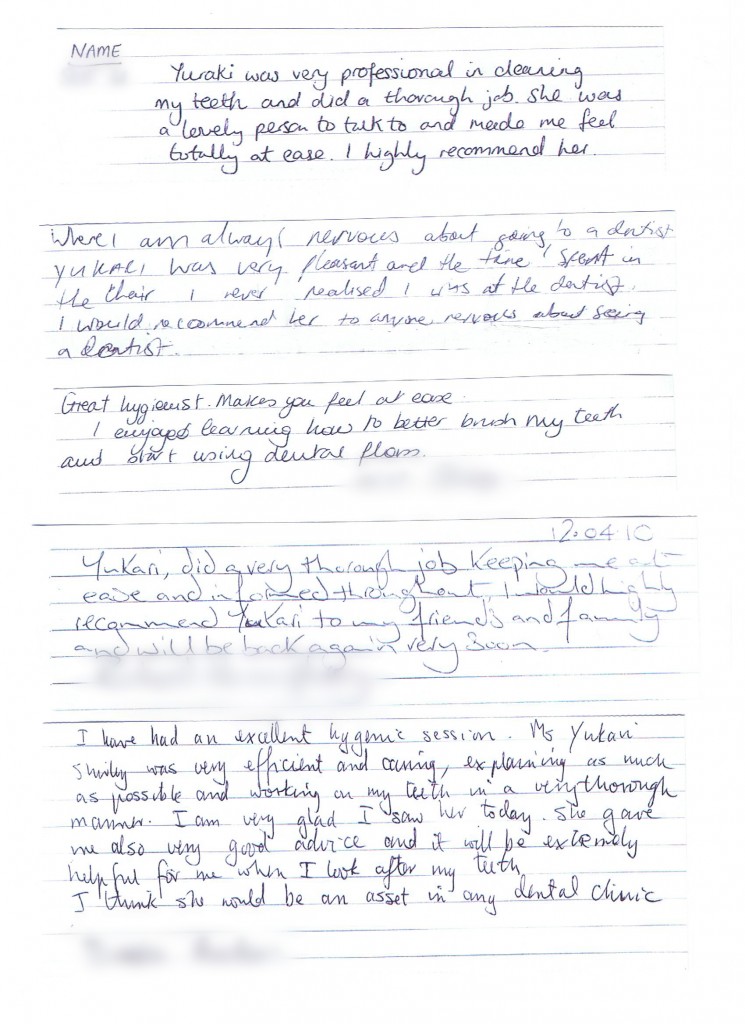 NAME
Yuraki was very professional in cleaning
my teeth and did a thorough job. She was
a lovely person to talk to and made me feel
totally at ease. I highly recommend her.
Where I am always nervous about going to a dentist
YUKARI was very pleasant and the time I spent in
the chair I never realised I was at the dentist.
I would recommend her to anyone nervous about seeing
a dentist.
Great hygienist. Makes you feel at ease.
I enjoyed learning how to better brush my teeth
and start using dental floss.
12.04.10
Yukari, did a very thorough job keeping me at
ease and informed throughout, I would highly
recommend Yukari to my friends and family
and will be back again very soon.
I have had an excellent hygenic session. Ms Yukari
was very efficient and caring, explaining as much
as possible and working on my teeth in a very thorough
manner. I am very glad I saw her today. She gave
me also very good advice and it will be extremely
helpful for me when I look after my teeth
I think she would be an asset in any dental clinic